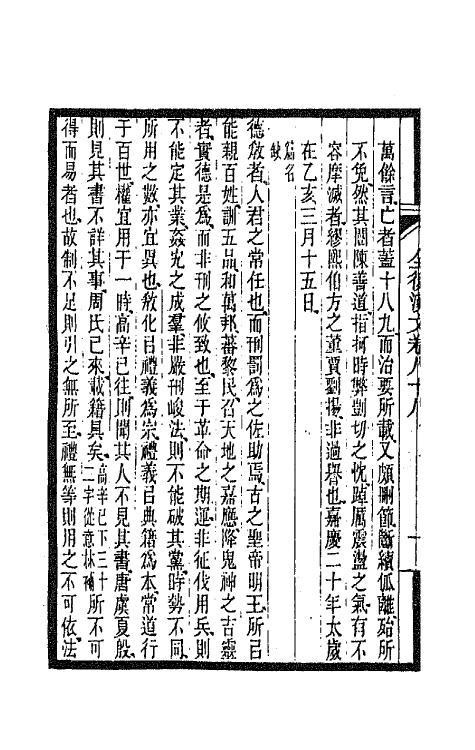 全後漢文卷八十八 一
萬餘言亡者蓋十八九而治要所載又頗刪節斷續仳離殆所
不免然其闓陳善道指柯時弊剴切之忱踔厲震盪之氣有不
容摩滅者繆熙伯方之董賈劉揚非過譽也嘉慶二十年太歲
在乙亥三月十五日
篇名缺
德敎者人君之常任也而刑罰爲之佐助焉古之聖帝明王所㠯
能親百姓訓五品和萬邦蕃黎民召天地之嘉應降鬼神之吉靈
者實德是爲而非刑之攸致也至于革命之期運非征伐用兵則
不能定其業姦宄之成羣非嚴刑峻法則不能破其黨時勢不同
所用之數亦宜異也敎化㠯禮義爲宗禮義㠯典籍爲本常道行
于百世權宜用于一時高辛已往則聞其人不見其書唐虞夏殷
則見其書不詳其事周氏已來載籍具矣高辛已下三十二字從意林補所不可
得而易者也故制不足則引之無所至禮無等則用之不可依法